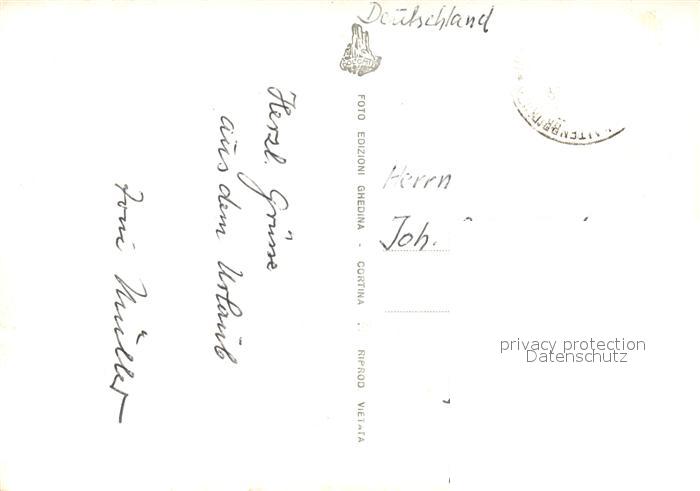 Deutschland
Herzl. Grüsse
aus dem Urlaub
Toni Müller
FOTO EDIZIONI GHEDINA - CORTINA - RIPROD VIETATA
Herrn
Joh.
privacy protection
Datenschutz